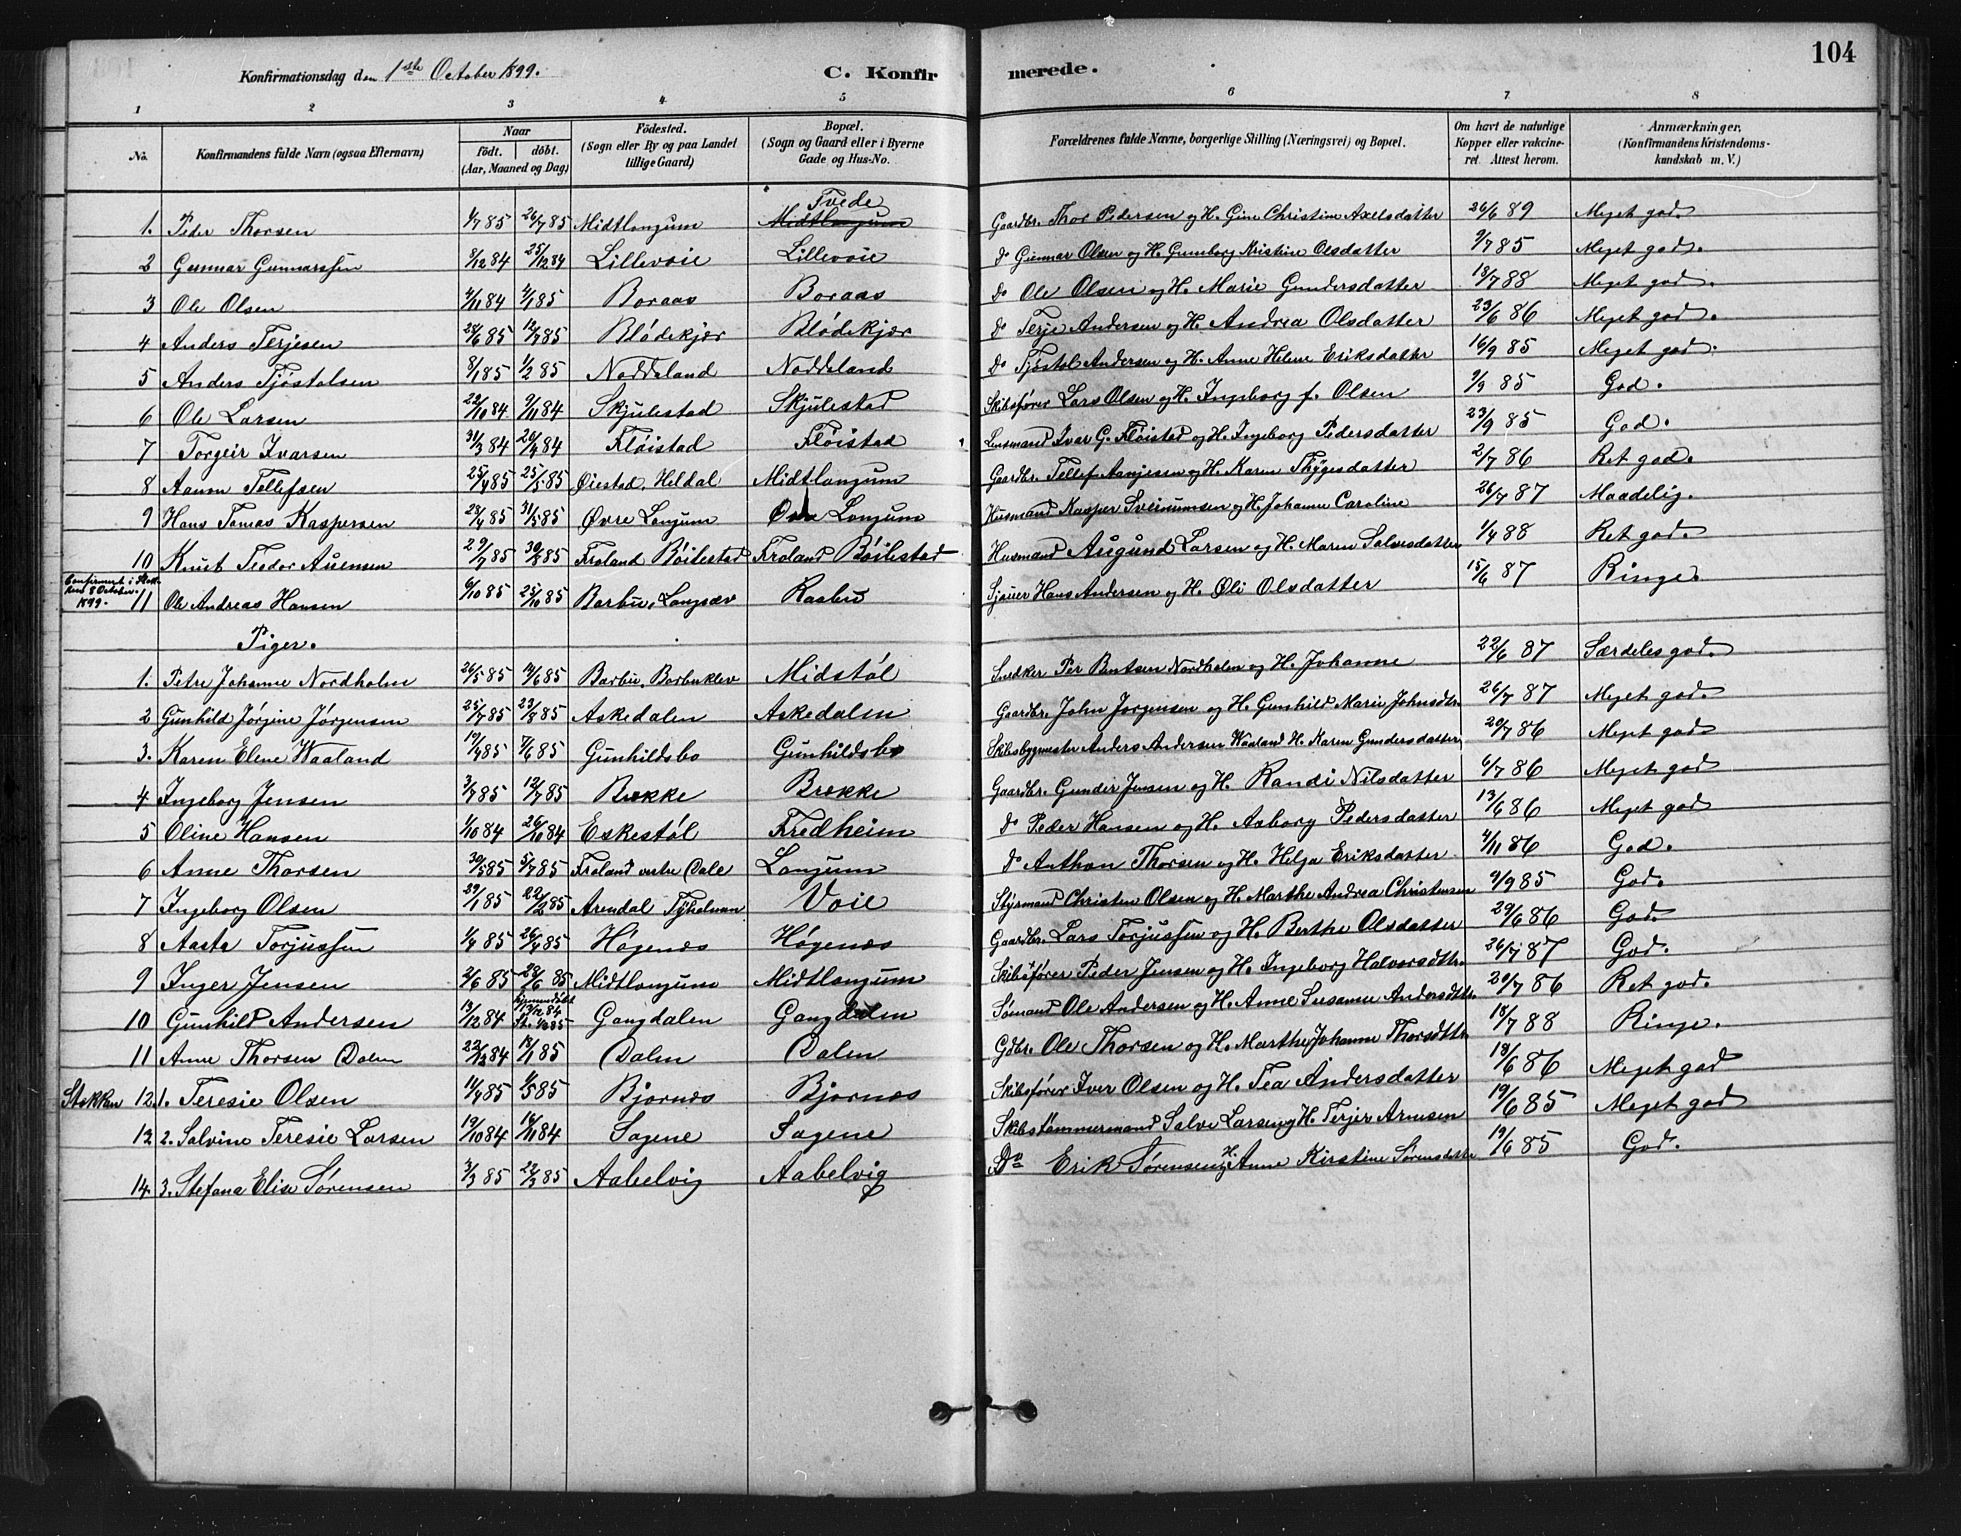 104
Konfirmationsdag den 1ste October 1899. C. Konfirmerede.
1 2 3 4 5 6 7 8
No. | Konfirmandens fulde Navn (ogsaa Efternavn) | Naar født. døbt. (Aar, Maaned og Dag) | Fødested. (Sogn eller By og paa Landet tillige Gaard) | Bopæl. (Sogn og Gaard eller i Byerne Gade og Hus-No. | Forældrenes fulde Navne, borgerlige Stilling (Næringsvei) og Bopæl. | Om havt de naturlige Kopper eller vakcineret. Attest herom. | Anmærkninger. (Konfirmandens Kristendomskundskab m. V.)
1. Peder Thorsen 1/7 85 26/7 85 Midtlongum Tvede Midtlongum Gaardbr. Thor Pedersen og H. Gine Christine Axelsdatter 26/6 89 Meget god.
2 Gunnar Gunnarssen 8/12 84 25/12 84 Lillevoie Lillevoie Do Gunnar Olsen og H. Gunborg Kristine Olsdatter 9/7 85 Meget god.
3 Ole Olsen 4/11 84 1/1 85 Boraas Boraas Do Ole Olsen og H. Marie Gundersdatter 18/7 88 Meget god.
4 Anders Terjesen 24/6 85 12/7 85 Blødekjær Blødekjær Do Terje Andersen og H. Andrea Olsdatter 23/6 86 Meget god.
5 Anders Tjøstolsen 8/1 85 1/2 85 Noddeland Noddeland Do Tjøstol Andersen og H. Anne Helene Eriksdatter 16/9 85 Meget god.
6 Ole Larsen 22/10 84 9/11 84 Skjulestad Skjulestad Skibsfører Lars Olsen og H. Ingeborg f. Olsen 9/9 85 God.
7 Torgeir Ivarsen 31/3 84 20/4 84 Fløistad Fløistad Lensmand Ivar G. Fløistad og H. Ingeborg Pedersdatter 23/9 85 God.
8 Aanon Tellefsen 25/4 85 25/5 85 Øiestad, Heldal Midtlongum Gaardbr. Tellef Aanjesen og H. Karen Thygesdatter 2/7 86 Ret god.
9 Hans Tomas Kaspersen 28/4 85 31/5 85 Øvre Longum Øvre Longum Husmand Kasper Sveinumsen og H. Johanne Caroline 26/7 87 Maadelig.
10 Knut Tedor Auensen 29/7 85 30/8 85 Froland Bøilestad Froland Bøilestad Husmand Augund Larsen og H. Maren Salvesdatter 1/4 88 Ret god.
Confirmeret i Stokken 8 October 1899.
11 Ole Andreas Hansen 6/10 85 25/10 85 Barbu, Langsæv Rasbu Sjauer Hans Andersen og H. Oli Olsdatter 15/6 87 Ringe.
Piger.
1. Petre Johanne Nordholm 26/5 85 14/6 85 Barbu, Barbuklev Midstøl Snedker Per Bentsen Nordholm og H. Johanne 22/6 87 Særdeles god.
2 Gunhild Jørgine Jørgensen 25/7 85 23/8 85 Askedalen Askedalen Gaardbr. John Jørgensen og H. Gunhild Marie Johnsdtr. 26/7 87 Meget god.
3. Karen Elene Waaland 19/4 85 7/6 85 Gunhildsbo Gunhildsbo Skibsbygmester Anders Andersen Waaland H. Karen Gundersdatter 20/7 86 Meget god
4 Ingeborg Jensen 3/7 85 12/7 85 Brække Brække Gaardbr. Gunder Jensen og H. Randi Nilsdatter 6/7 86 Meget god
5 Oline Hansen 1/10 84 26/10 84 Eskestøl Fredheim Do Peder Hansen og H. Aaborg Pedersdatter 13/6 86 Meget god
6 Anne Thorsen 30/5 85 5/7 85 Froland vestre Dale Longum Do Anthon Thorsen og H. Helga Eriksdatter 4/11 86 God.
7 Ingeborg Olsen 29/1 85 22/2 85 Arendal Tyholmen Voie Styrmand Christen Olsen og H. Marthe Andrea Christensen 9/9 85 God.
8 Aasta Torjussen 1/4 85 26/4 85 Høgenæs Høgenæs Gaardbr. Lars Torjussen og H. Berthe Olsdatter 29/6 86 God.
9 Inger Jensen 2/6 85 28/6 85 Midtlongum Midtlongum Skibsfører Peder Jensen og H. Ingeborg Halvorsdtr. 26/7 87 God.
10 Gunhild Andersen 13/12 84 Hjemmedøbt Gangdalen Gangdalen Sømand Ole Andersen og H. Anne Susanne Andersdtr. 20/7 86 Ret god.
11 Anne Thorsen Dalen 22/12 84 18/1 85 Dalen Dalen Gdbr. Ole Thorsen og H. Marthe Johanne Thorsdtr. 18/7 88 Ringe.
Stokken 12. 1. Teresie Olsen 11/4 85 1/5 85 Bjornæs Bjornæs Skibsfører Iver Olsen og H. Tea Andersdatter 18/6 86 Meget god
13 2. Salvine Teresie Larsen 19/10 84 16/11 84 Sagene Sagene Skibstømmermand Salve Larsen og H. Terjer Arnesen 19/6 85 Meget god
14. 3. Stefana Elise Sørensen 3/3 85 22/3 85 Aabelvig Aabelvig Do Erik Sørensen og H. Anne Kirstine Sørensdatter 19/6 85 God.